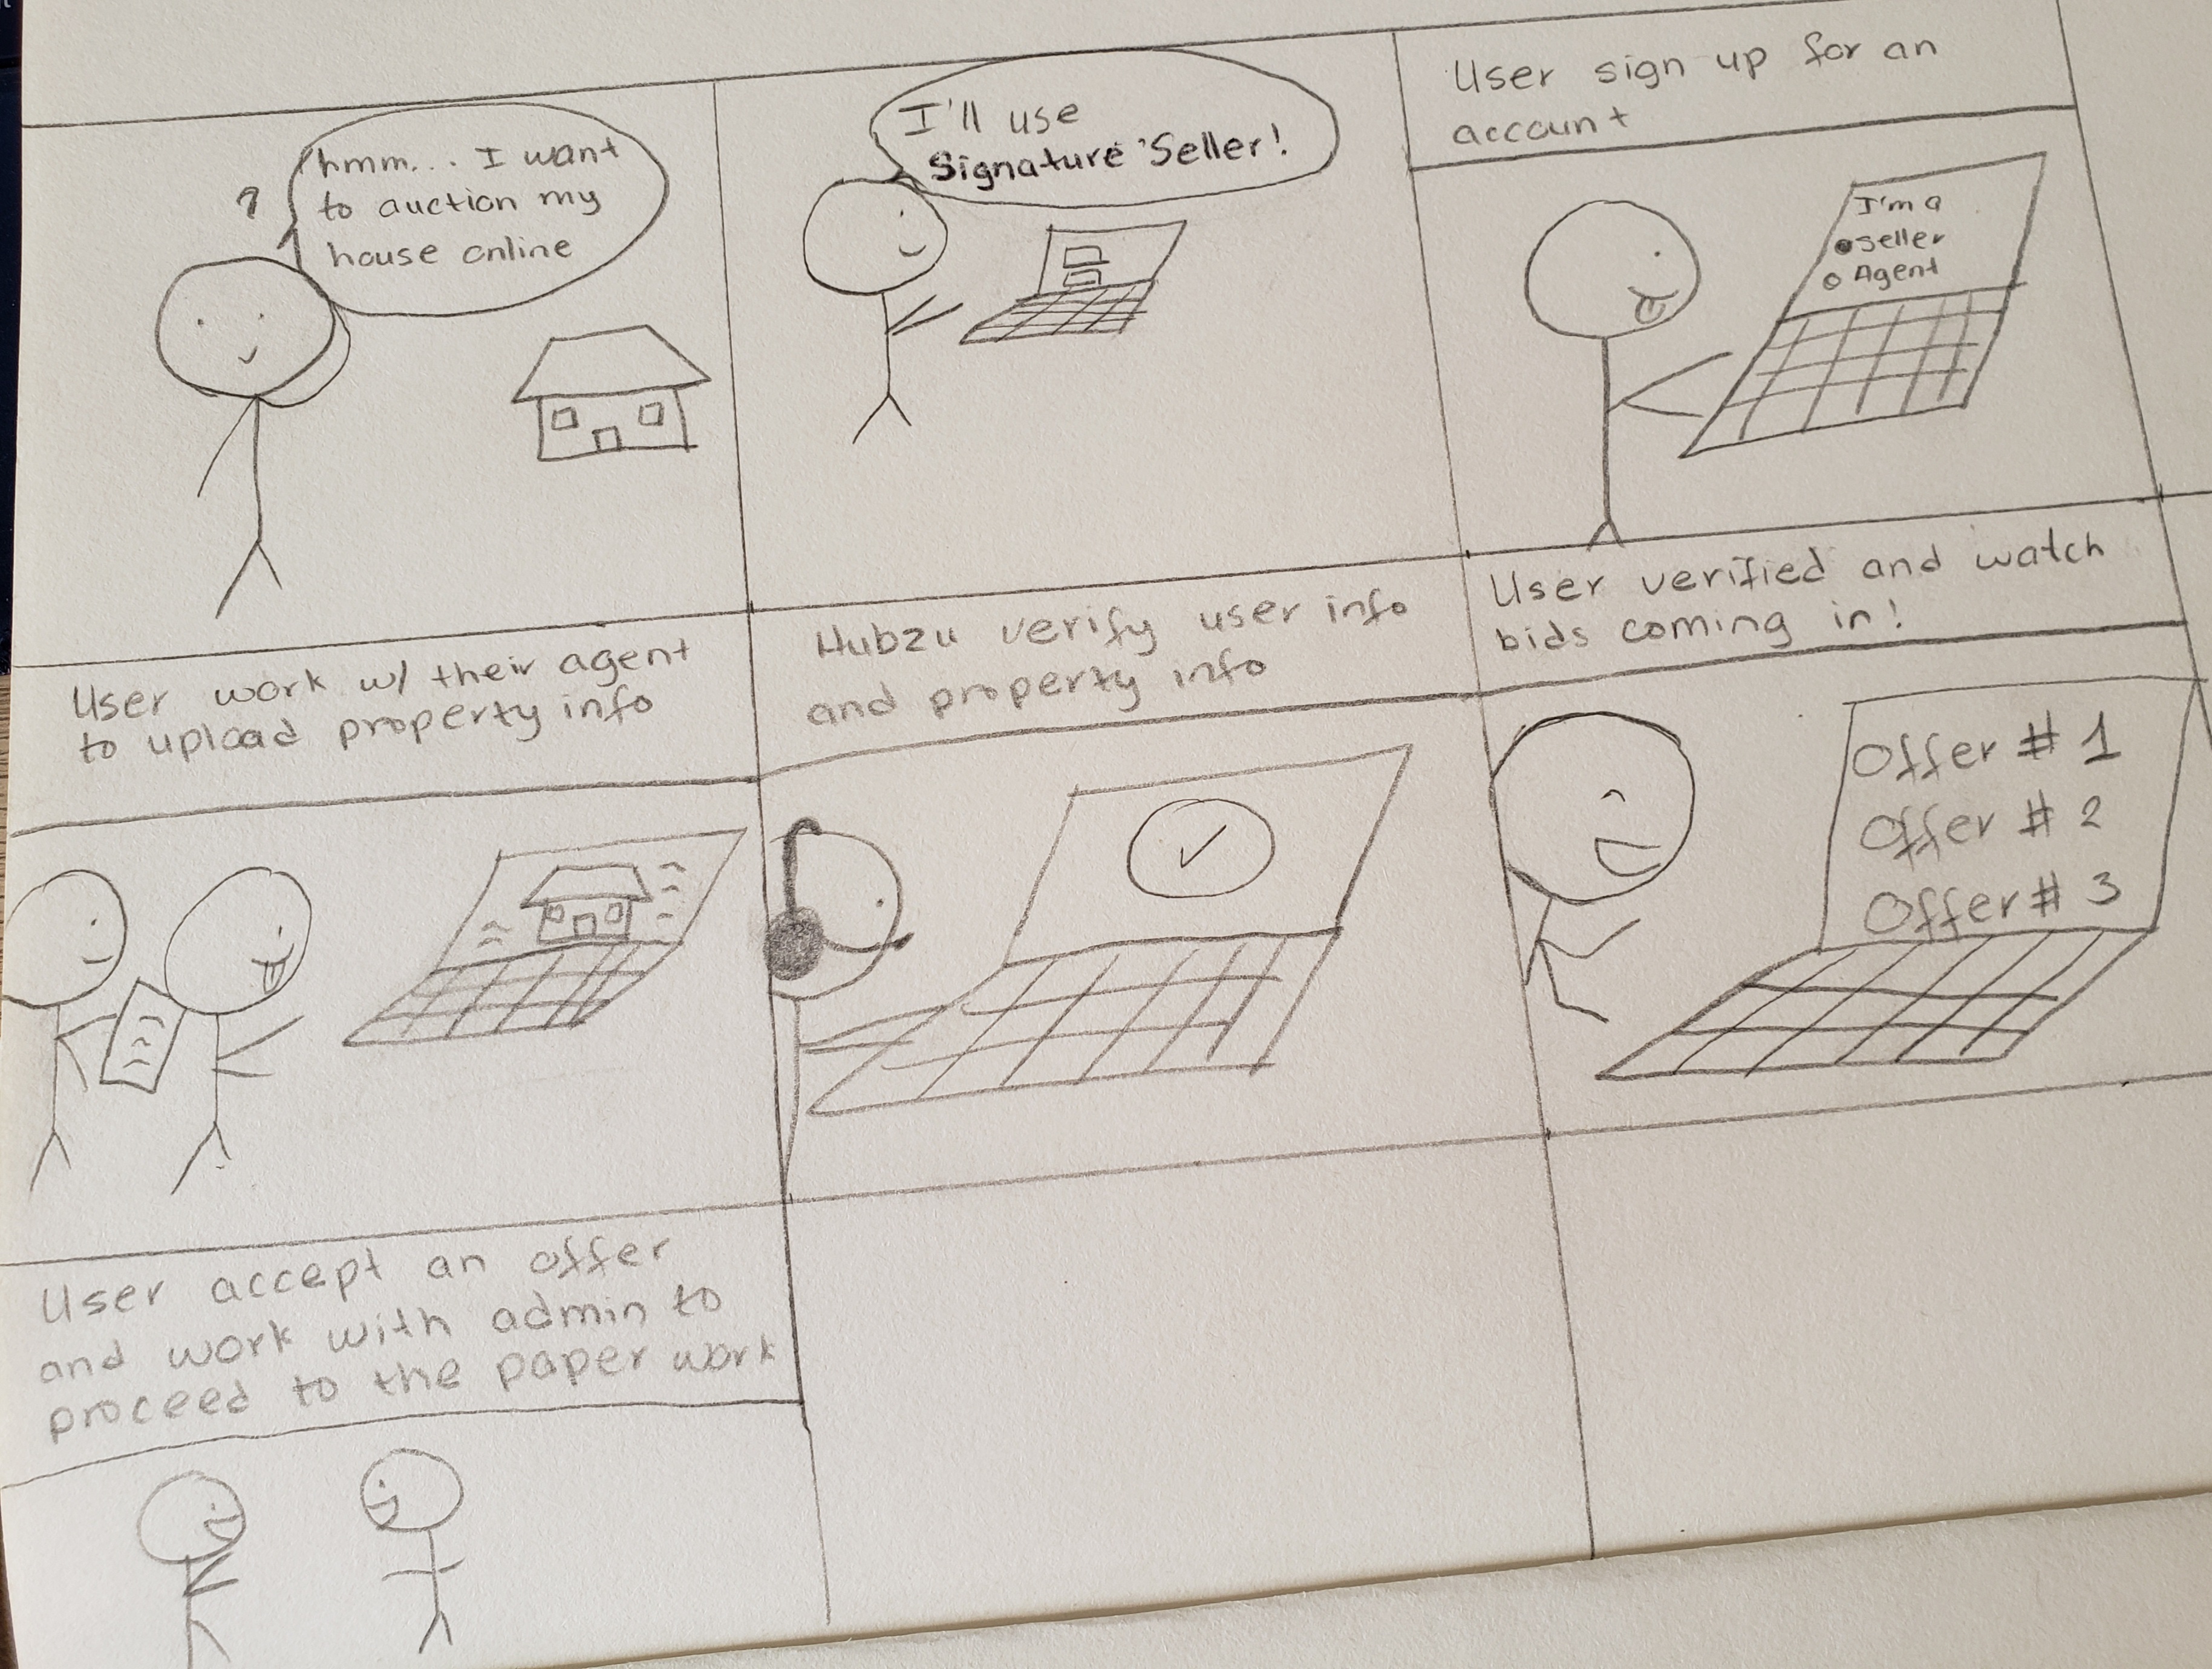 ?
hmm... I want
to auction my
house online
I'll use
Signature Seller!
User sign up for an
account
I'm a
Seller
Agent
User work w/ their agent
to upload property info
Hubzu verify user info
and property info
User verified and watch
bids coming in!
Offer # 1
Offer # 2
Offer # 3
User accept an offer
and work with admin to
proceed to the paper work